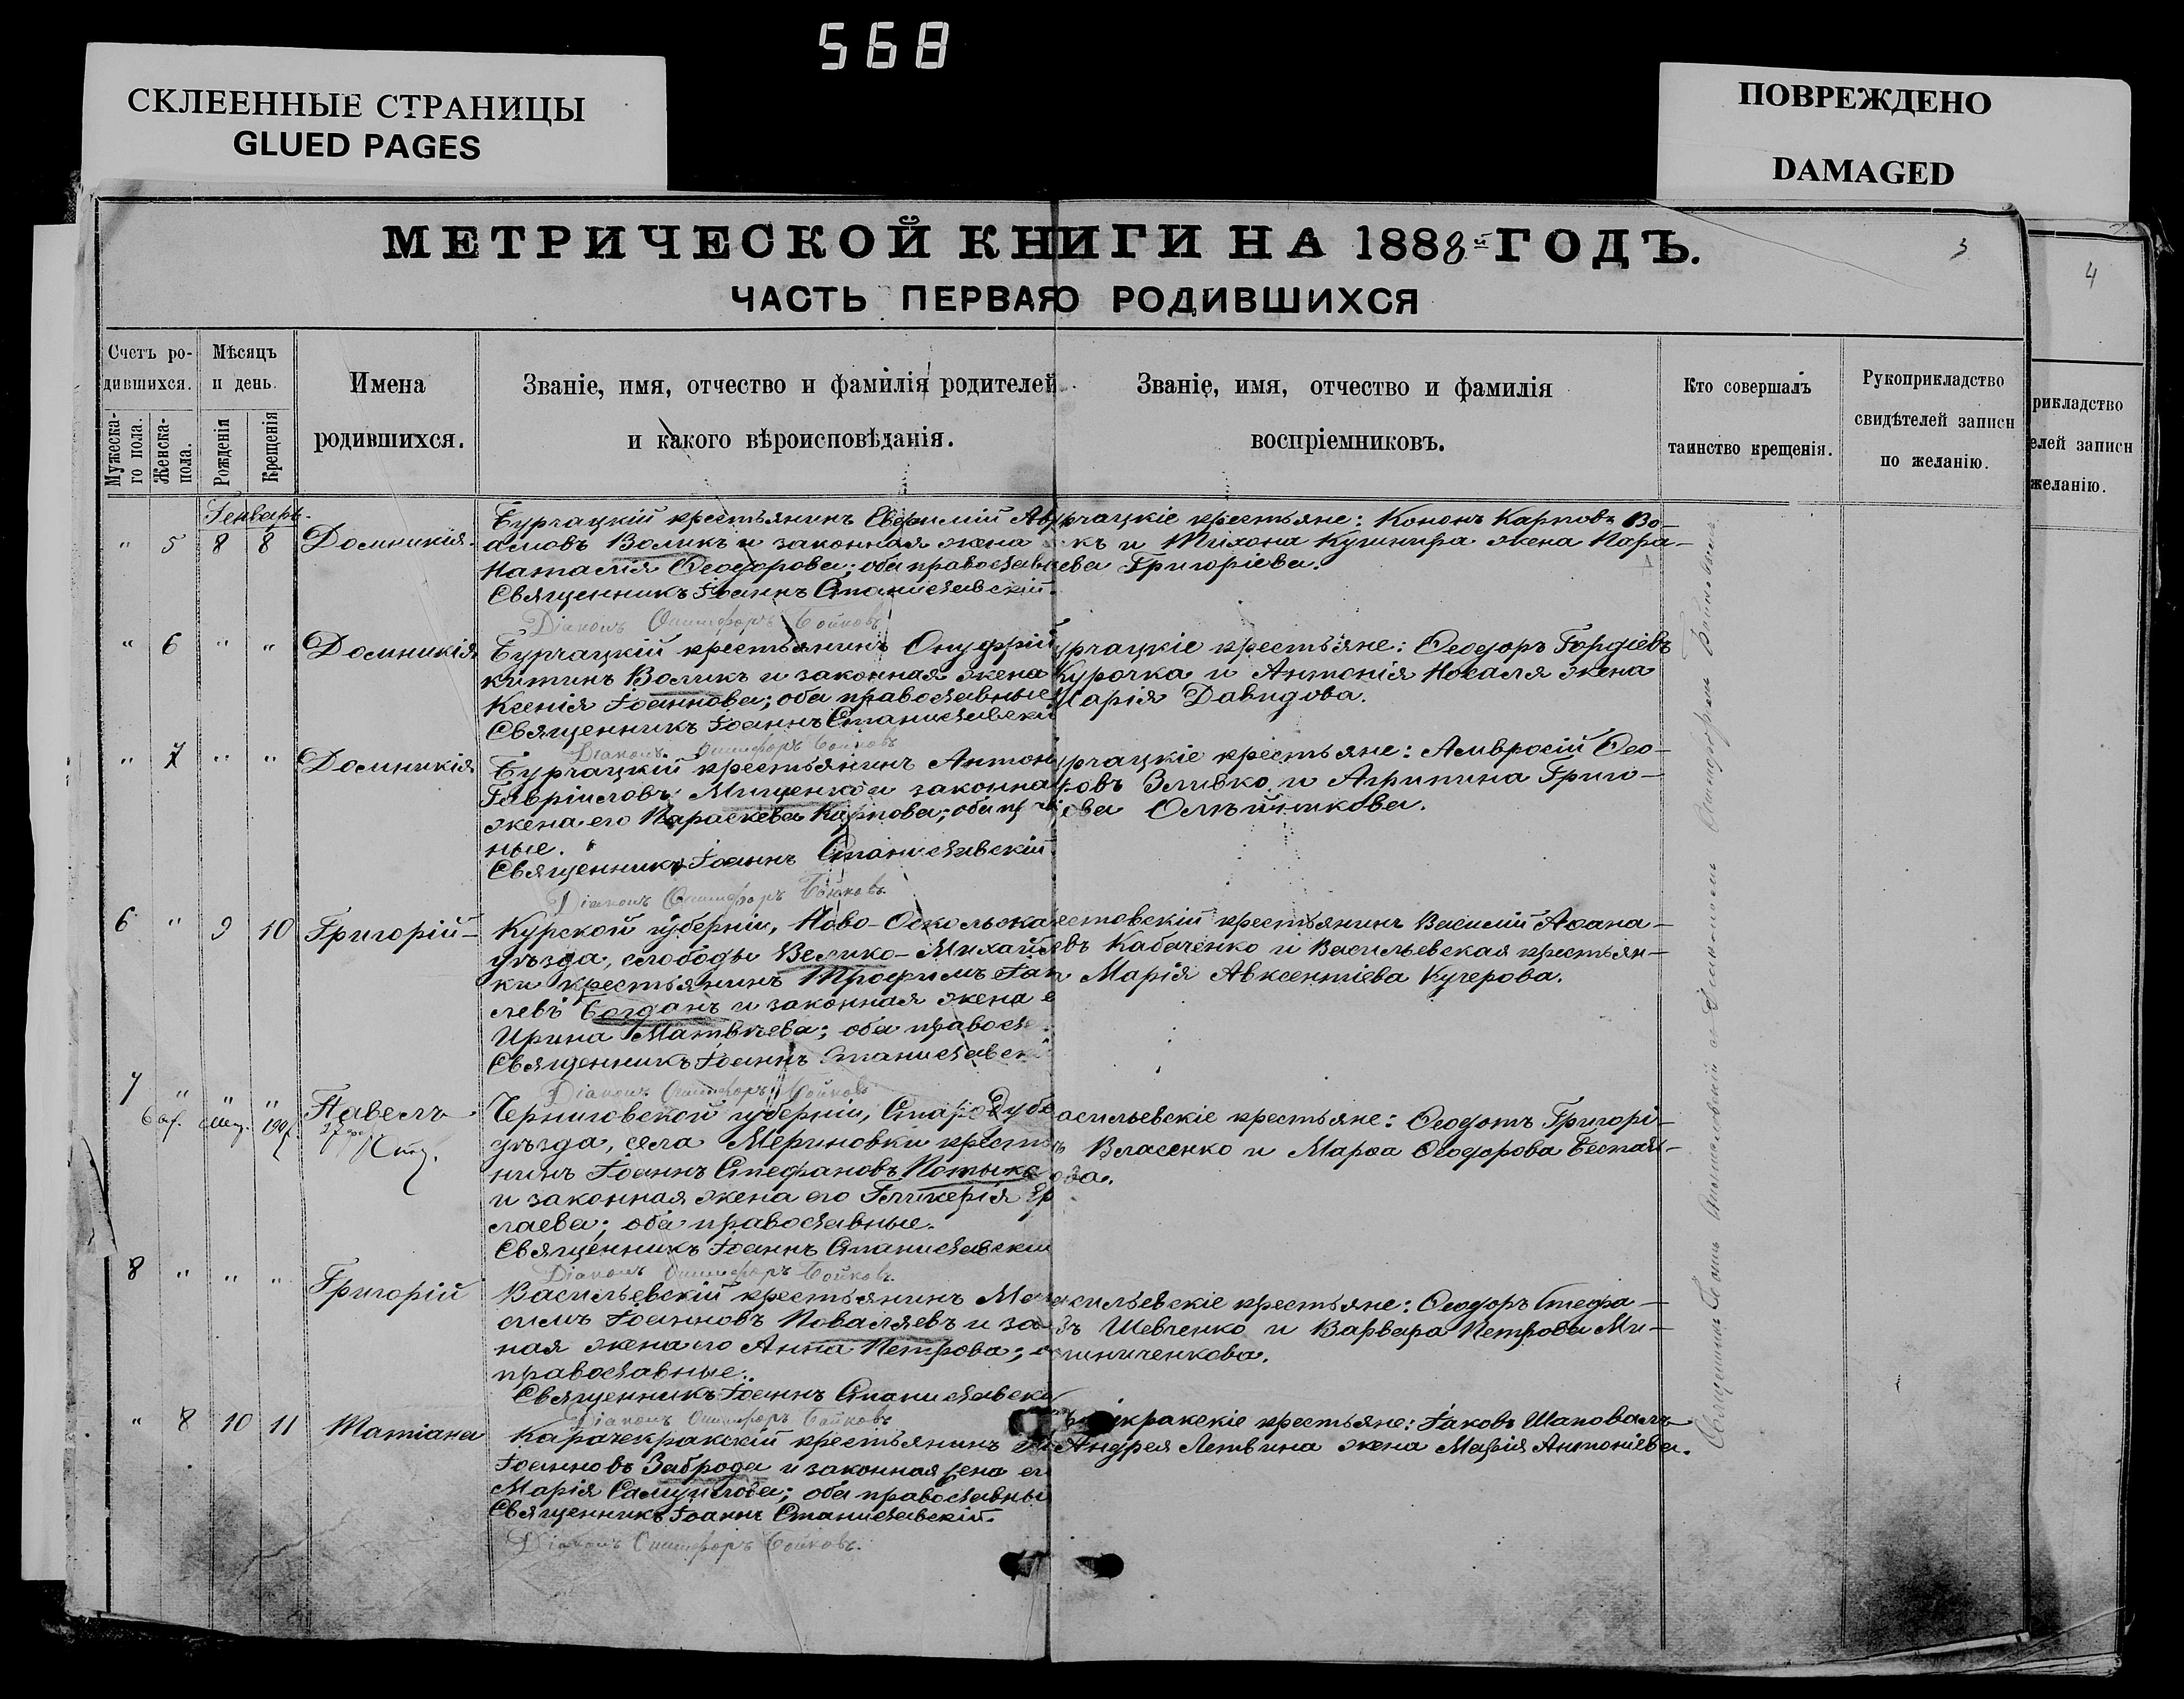 568
СКЛЕЕННЫЕ СТРАНИЦЫ
GLUED PAGES
ПОВРЕЖДЕНО
DAMAGED
МЕТРИЧЕСКОЙ КНИГИ НА 1888й ГОДЪ.
3
4
ЧАСТЬ ПЕРВАЯ О РОДИВШИХСЯ
Счетъ ро-
дившихся.
Мужеска-
го пола.
Женска-
пола.
Мѣсяцъ
и день.
Рожденія
Крещенія
Имена
родившихся.
Званіе, имя, отчество и фамилія родителей
и какого вѣроисповѣданія.
Званіе, имя, отчество и фамилія
воспріемниковъ.
Кто совершалъ
таинство крещенія.
Рукоприкладство
свидѣтелей записи
по желанію.
рикладство
елей записи
желанію.
Генварь.
" 5 8 8 Домникія.
Бурчацкій крестьянинъ Евфимій
Воликъ и законная жена
Наталія Ѳеодорова; оба православн
Священникъ Іоаннъ Станиславскій.
Діаконъ Онисифоръ Бойковъ
рчацкіе крестьяне: Кононъ Карповъ Во-
къ и Тихона Кушнира жена Пара-
ева Григоріева.
" 6 " " Домникія
Бурчацкій крестьянинъ Онуфрій
китинъ Воликъ и законная жена
Ксенія Іоаннова; оба православные
Священникъ Іоаннъ Станиславскій
Діаконъ Онисифоръ Бойковъ
урчацкіе крестьяне: Ѳеодоръ Гордіевъ
Курочка и Антонія Москаля жена
Марія Давидова.
" 7 " " Домникія
Бурчацкій крестьянинъ Антон
Гавріиловъ Мищенко и законна
жена его Параскева Карпова; оба
ные.
Священникъ Іоаннъ Станиславскій
Діаконъ Онисифоръ Бойковъ.
урчацкіе крестьяне: Амвросій Ѳео-
ровъ Зливко и Агрипина Григо-
ова
6 " 9 10 Григорій
Курской губерніи, Ново-Оскольска
уѣзда, слободы Велико-Михайл
ки крестьянинъ Трофимъ
левъ Богданъ и законная жена е
Ирина Матвѣева; оба правосл
Священникъ Іоаннъ Станиславскі
Діаконъ Онисифоръ Бойковъ
естовскій крестьянинъ Василій Аѳана-
евъ Кабаченко и Васильевская крестьян-
Марія Авксентіева Кучерова.
7 " " " Павелъ
Черниговской губерніи, Стародубс
уѣзда, села Мериновки кресть
нинъ Іоаннъ Стефановъ Потыка
и законная жена его Гликерія Ер
лаева; оба православные.
Священникъ Іоаннъ Станиславскій
Діаконъ Онисифоръ Бойковъ.
асильевскіе крестьяне: Ѳеодотъ Григорі-
Власенко и Марѳа Ѳеодорова
ова.
8 " " " Григорій
Васильевскій крестьянинъ
симъ Іоанновъ Поваляевъ и за
ная жена его Анна Петрова;
православные.
Священникъ Іоаннъ Станиславскі
Діаконъ Онисифоръ Бойковъ
асильевскіе крестьяне: Ѳеодоръ Стефа-
въ Шевченко и Варвара Петрова Ми-
ниченкова.
" 8 10 11 Татіана
Карачекракскій крестьянинъ
Іоанновъ Заброда и законная жена ег
Марія Самуилова; оба православны
Священникъ Іоаннъ Станиславскій.
Діаконъ Онисифоръ Бойковъ.
кракскіе крестьяне: Іаковъ Шаповалъ
Андрея Летвина жена Марія Антоніева.
Священникъ Іоаннъ Станиславскій съ Діакономъ Онисифоромъ Бойковымъ